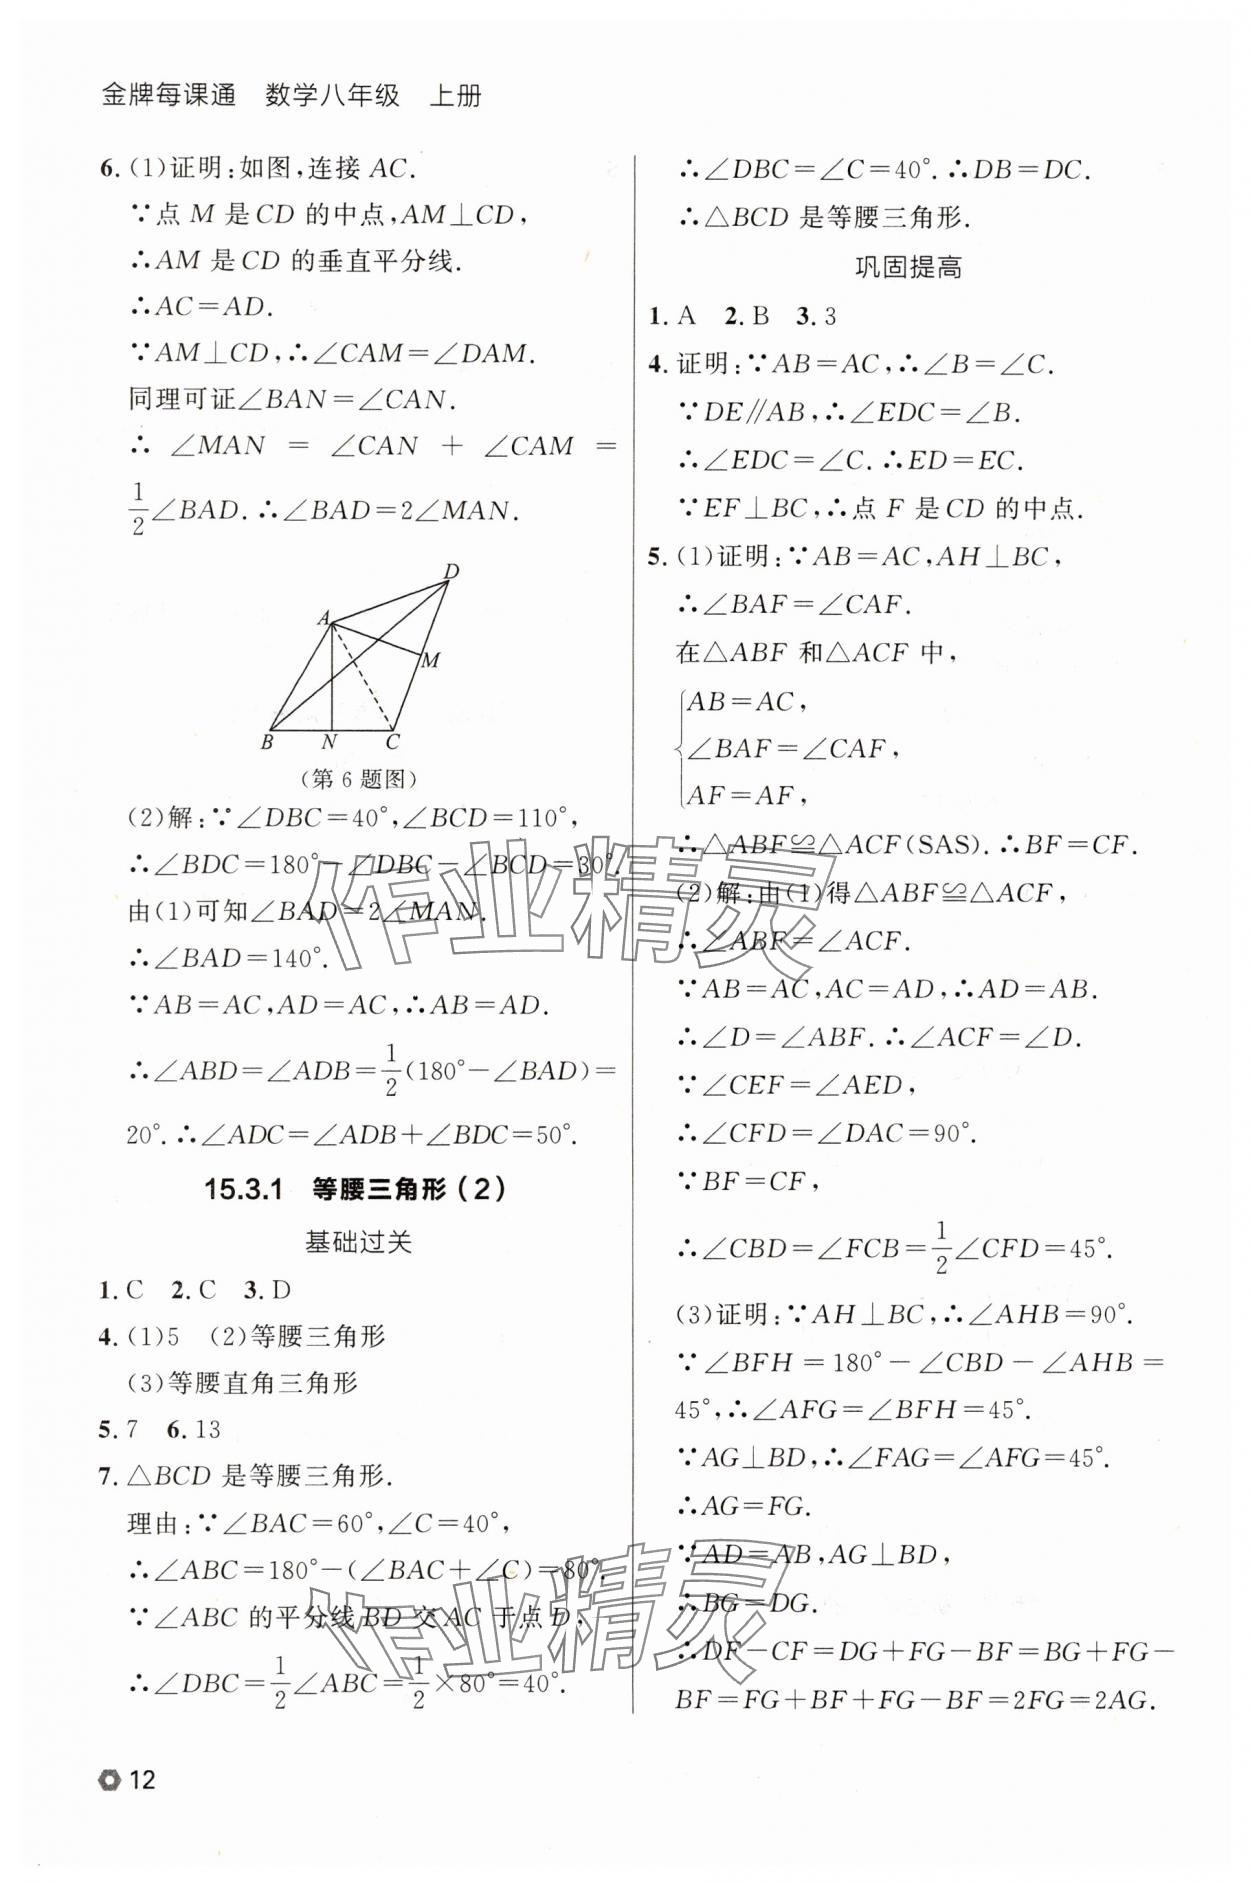 金牌每课通 数学八年级 上册
6. (1)证明:如图,连接 AC.
∵点 M 是 CD 的中点,AM⊥CD,
∴AM 是 CD 的垂直平分线.
∴AC=AD.
∵AM⊥CD,∴∠CAM=∠DAM.
同理可证∠BAN=∠CAN.
∴ ∠MAN = ∠CAN + ∠CAM =
1/2∠BAD.∴∠BAD=2∠MAN.
D
A
M
B N C
(第 6 题图)
(2)解:∵∠DBC=40°,∠BCD=110°,
∴∠BDC=180°-∠DBC-∠BCD=30°.
由(1)可知∠BAD=2∠MAN.
∴∠BAD=140°.
∵AB=AC,AD=AC,∴AB=AD.
∴∠ABD=∠ADB=1/2(180°-∠BAD)=
20°.∴∠ADC=∠ADB+∠BDC=50°.
15.3.1 等腰三角形(2)
基础过关
1. C 2. C 3. D
4. (1)5 (2)等腰三角形
(3)等腰直角三角形
5. 7 6. 13
7. △BCD 是等腰三角形.
理由:∵∠BAC=60°,∠C=40°,
∴∠ABC=180°-(∠BAC+∠C)=80°.
∵∠ABC 的平分线 BD 交 AC 于点 D,
∴∠DBC=1/2∠ABC=1/2×80°=40°.
∴∠DBC=∠C=40°.∴DB=DC.
∴△BCD 是等腰三角形.
巩固提高
1. A 2. B 3. 3
4. 证明:∵AB=AC,∴∠B=∠C.
∵DE∥AB,∴∠EDC=∠B.
∴∠EDC=∠C.∴ED=EC.
∵EF⊥BC,∴点 F 是 CD 的中点.
5. (1)证明:∵AB=AC,AH⊥BC,
∴∠BAF=∠CAF.
在△ABF 和△ACF 中,
AB=AC,
∠BAF=∠CAF,
AF=AF,
∴△ABF≌△ACF(SAS).∴BF=CF.
(2)解:由(1)得△ABF≌△ACF,
∴∠ABF=∠ACF.
∵AB=AC,AC=AD,∴AD=AB.
∴∠D=∠ABF.∴∠ACF=∠D.
∵∠CEF=∠AED,
∴∠CFD=∠DAC=90°.
∵BF=CF,
∴∠CBD=∠FCB=1/2∠CFD=45°.
(3)证明:∵AH⊥BC,∴∠AHB=90°.
∵∠BFH=180°-∠CBD-∠AHB=
45°,∴∠AFG=∠BFH=45°.
∵AG⊥BD,∴∠FAG=∠AFG=45°.
∴AG=FG.
∵AD=AB,AG⊥BD,
∴BG=DG.
∴DF-CF=DG+FG-BF=BG+FG-
BF=FG+BF+FG-BF=2FG=2AG.
作业精灵
作业精灵
12